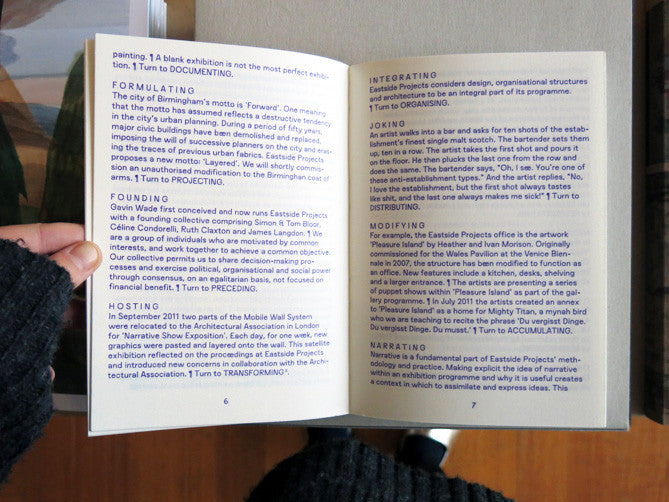 painting. ¶ A blank exhibition is not the most perfect exhibi-
tion. ¶ Turn to DOCUMENTING.
FORMULATING
The city of Birmingham's motto is 'Forward'. One meaning
that the motto has assumed reflects a destructive tendency
in the city's urban planning. During a period of fifty years,
major civic buildings have been demolished and replaced,
imposing the will of successive planners on the city and eras-
ing the traces of previous urban fabrics. Eastside Projects
proposes a new motto: 'Layered'. We will shortly commis-
sion an unauthorised modification to the Birmingham coat of
arms. ¶ Turn to PROJECTING.
FOUNDING
Gavin Wade first conceived and now runs Eastside Projects
with a founding collective comprising Simon & Tom Bloor,
Céline Condorelli, Ruth Claxton and James Langdon. ¶ We
are a group of individuals who are motivated by common
interests, and work together to achieve a common objective.
Our collective permits us to share decision-making pro-
cesses and exercise political, organisational and social power
through consensus, on an egalitarian basis, not focused on
financial benefit. ¶ Turn to PRECEDING.
HOSTING
In September 2011 two parts of the Mobile Wall System
were relocated to the Architectural Association in London
for 'Narrative Show Exposition'. Each day, for one week, new
graphics were pasted and layered onto the wall. This satellite
exhibition reflected on the proceedings at Eastside Projects
and introduced new concerns in collaboration with the Archi-
tectural Association. ¶ Turn to TRANSFORMING⁴.
6
INTEGRATING
Eastside Projects considers design, organisational structures
and architecture to be an integral part of its programme.
¶ Turn to ORGANISING.
JOKING
An artist walks into a bar and asks for ten shots of the estab-
lishment's finest single malt scotch. The bartender sets them
up, ten in a row. The artist takes the first shot and pours it
on the floor. He then plucks the last one from the row and
does the same. The bartender says, "Oh, I see. You're one of
these anti-establishment types." And the artist replies, "No,
I love the establishment, but the first shot always tastes
like shit, and the last one always makes me sick!" ¶ Turn to
DISTRIBUTING.
MODIFYING
For example, the Eastside Projects office is the artwork
'Pleasure Island' by Heather and Ivan Morison. Originally
commissioned for the Wales Pavilion at the Venice Bien-
nale in 2007, the structure has been modified to function as
an office. New features include a kitchen, desks, shelving
and a larger entrance. ¶ The artists are presenting a series
of puppet shows within 'Pleasure Island' as part of the gal-
lery programme. ¶ In July 2011 the artists created an annex
to 'Pleasure Island' as a home for Mighty Titan, a mynah bird
who we are teaching to recite the phrase 'Du vergisst Dinge.
Du vergisst Dinge. Du musst.' ¶ Turn to ACCUMULATING.
NARRATING
Narrative is a fundamental part of Eastside Projects' meth-
odology and practice. Making explicit the idea of narrative
within an exhibition programme and why it is useful creates
a context in which to assimilate and express ideas. This
7